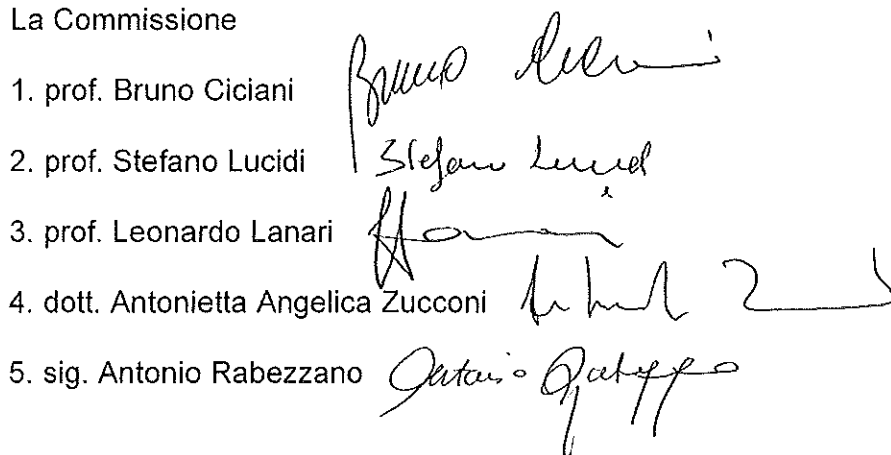 La Commissione
1. prof. Bruno Ciciani Bruno
2. prof. Stefano Lucidi Stefano Lucidi
3. prof. Leonardo Lanari
4. dott. Antonietta Angelica Zucconi
5. sig. Antonio Rabezzano Antonio